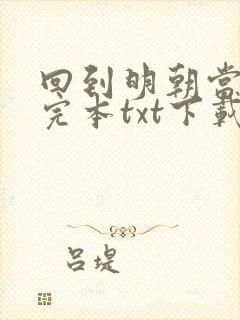 回到明朝当
完本txt下载
吕堤